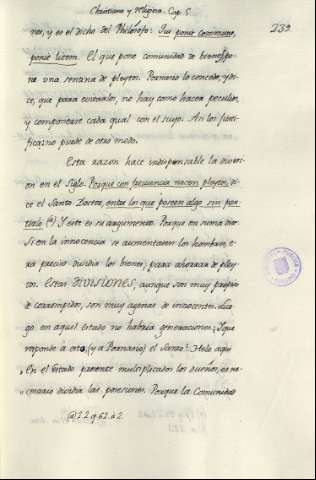 Christiano y Plagina. Cap. 5
239.
nes, y es el dicho del Philósofo: Qui ponit commune,
ponit litem. El que pone comunidad de bienes, po-
ne una sentina de pleytos. Pornario la concede, y di-
ce, que para evitarlos, no hay como hacer peculios,
y componerse cada qual con el suyo. Así los justi-
fica: no puede de otro modo.
Esta razon hace indispensable la divisi-
on en el Siglo. Porque con frecuencia nacen pleytos, di-
ce el Santo Doctor, entre los que poseen algo sin par-
tirlo (a) Y este es su argumento. Porque en suma dice:
Si en la innocencia se aumentasen los hombres, e-
ra preciso dividir los bienes, para ahorrar de pley-
tos. Estas DIVISIONES, aunque son muy propias
de corrompidos, son muy agenas de innocentes. Lue-
go en aquel estado no habria generaciones. Que
responde à esto (y a Pornario) el Santo? Helo aqui
„ En el Estado presente multiplicados los dueños, es ne-
„ cesario dividir las posesiones. Porque la Comunidad
(a) 2. 2. q. 62. a. 2.